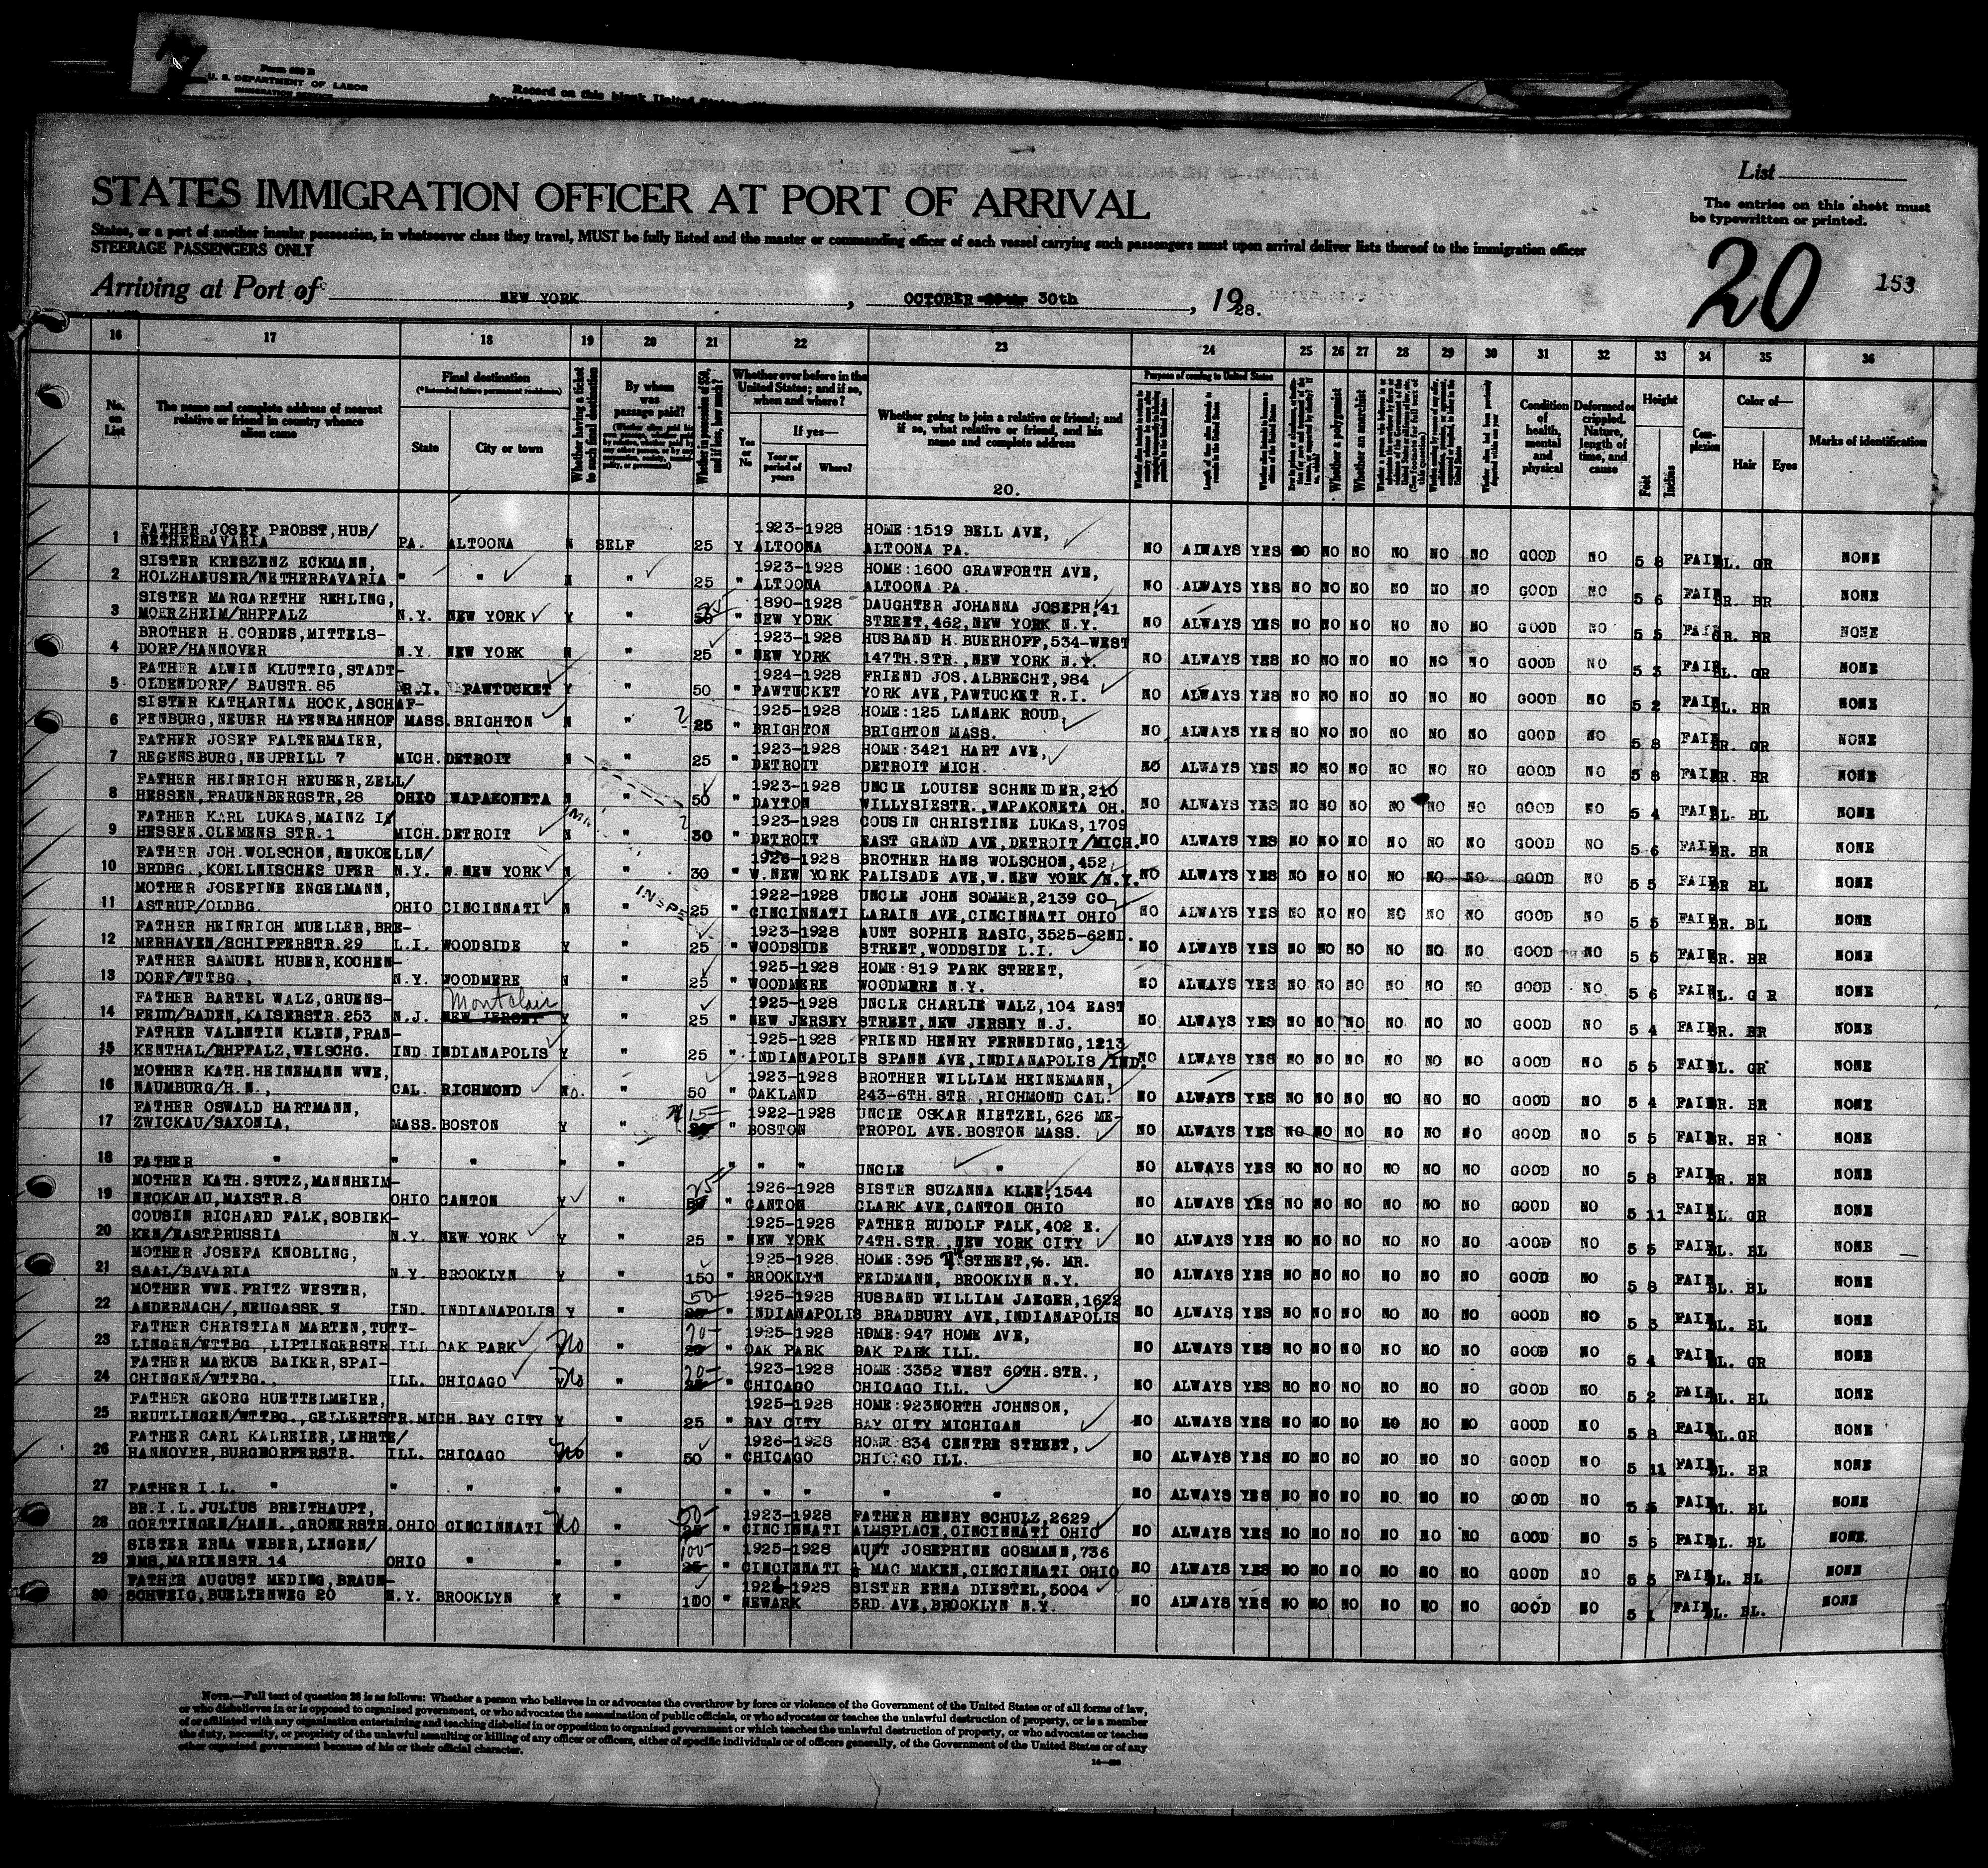 Form 630 B
U. S. DEPARTMENT OF LABOR
IMMIGRATION SERVICE
Record on this blank United States
List
STATES IMMIGRATION OFFICER AT PORT OF ARRIVAL
The entries on this sheet must
be typewritten or printed.
States, or a part of another insular possession, in whatsoever class they travel, MUST be fully listed and the master or commanding officer of each vessel carrying such passengers must upon arrival deliver lists thereof to the immigration officer
STEERAGE PASSENGERS ONLY
20 153
Arriving at Port of NEW YORK, OCTOBER 30th, 1928.
16 17 18 19 20 21 22 23 24 25 26 27 28 29 30 31 32 33 34 35 36
No. on List
The name and complete address of nearest relative or friend in country whence alien came
Final destination
(*Intended future permanent residence)
State
City or town
Whether having a ticket to such final destination
By whom was passage paid?
Whether in possession of $50, and if less, how much?
Whether ever before in the United States; and if so, when and where?
Yes or No
If yes—
Year or period of years
Where?
Whether going to join a relative or friend; and if so, what relative or friend, and his name and complete address
20.
Purpose of coming to United States
Whether a polygamist
Whether an anarchist
Condition of health, mental and physical
Deformed or crippled. Nature, length of time, and cause
Height
Feet
Inches
Complexion
Color of—
Hair
Eyes
Marks of identification
FATHER JOSEF PROBST, HUB/ 1923-1928 HOME:1519 BELL AVE,
1 NETHERBAVARIA PA. ALTOONA N SELF 25 Y ALTOONA ALTOONA PA. NO ALWAYS YES NO NO NO NO NO NO GOOD NO 5 8 FAIR BL. GR NONE
SISTER KRESZENZ ECKMANN, 1923-1928 HOME:1600 GRAWFORTH AVE,
2 HOLZHAEUSER/NETHERBAVARIA " " N " 25 " ALTOONA ALTOONA PA. NO ALWAYS YES NO NO NO NO NO NO GOOD NO 5 6 FAIR BR. BR NONE
SISTER MARGARETHE REHLING, 1890-1928 DAUGHTER JOHANNA JOSEPH, 41
3 MOERZHEIM/RHPFALZ N.Y. NEW YORK Y " 50 " NEW YORK STREET, 462, NEW YORK N.Y. NO ALWAYS YES NO NO NO NO NO NO GOOD NO 5 5 FAIR GR. BR NONE
BROTHER H. CORDES, MITTELS- 1923-1928 HUSBAND H. BUERHOFF, 534-WEST
4 DORF/HANNOVER N.Y. NEW YORK N " 25 " NEW YORK 147TH.STR., NEW YORK N.Y. NO ALWAYS YES NO NO NO NO NO NO GOOD NO 5 3 FAIR BL. GR NONE
FATHER ALWIN KLUTTIG, STADT- 1924-1928 FRIEND JOS. ALBRECHT, 984
5 OLDENDORF/ BAUSTR. 85 R.I. PAWTUCKET Y " 50 " PAWTUCKET YORK AVE, PAWTUCKET R.I. NO ALWAYS YES NO NO NO NO NO NO GOOD NO 5 2 FAIR BL. BR NONE
SISTER KATHARINA HOCK, ASCHAF- 1925-1928 HOME:125 LANARK ROUD,
6 FENBURG, NEUER HAFENBAHNHOF MASS. BRIGHTON N " 25 " BRIGHTON BRIGHTON MASS. NO ALWAYS YES NO NO NO NO NO NO GOOD NO 5 8 FAIR BR. GR NONE
FATHER JOSEF FALTERMAIER, 1923-1928 HOME:3421 HART AVE,
7 REGENSBURG, NEUPRILL 7 MICH. DETROIT N " 25 " DETROIT DETROIT MICH. NO ALWAYS YES NO NO NO NO NO NO GOOD NO 5 8 FAIR BR. BR NONE
FATHER HEINRICH REUBER, ZELL/ 1923-1928 UNCLE LOUISE SCHNEIDER, 210
8 HESSEN, FRAUENBERGSTR, 28 OHIO WAPAKONETA N " 50 " DAYTON WILLYSIESTR., WAPAKONETA OH. NO ALWAYS YES NO NO NO NO NO NO GOOD NO 5 4 FAIR BL. BL NONE
FATHER KARL LUKAS, MAINZ I/ 1923-1928 COUSIN CHRISTINE LUKAS, 1709
9 HESSEN. CLEMENS STR. 1 MICH. DETROIT N " 30 " DETROIT EAST GRAND AVE, DETROIT/MICH. NO ALWAYS YES NO NO NO NO NO NO GOOD NO 5 6 FAIR BR. BR NONE
FATHER JOH. WOLSCHON, NEUKOELLN/ 1926-1928 BROTHER HANS WOLSCHON, 452
10 BRDBG., KOELLNISCHES UFER N.Y. W. NEW YORK N " 30 " W. NEW YORK PALISADE AVE, W. NEW YORK/N.Y. NO ALWAYS YES NO NO NO NO NO NO GOOD NO 5 5 FAIR BR BL NONE
MOTHER JOSEFINE ENGELMANN, 1922-1928 UNCLE JOHN SOMMER, 2139 CO-
11 ASTRUP/OLDBG. OHIO CINCINNATI N " 25 " CINCINNATI LARAIN AVE, CINCINNATI OHIO NO ALWAYS YES NO NO NO NO NO NO GOOD NO 5 5 FAIR BR. BL NONE
FATHER HEINRICH MUELLER, BRE- 1923-1928 AUNT SOPHIE RASIC, 3525-62ND.
12 MERHAVEN/SCHIFFERSTR. 29 L.I. WOODSIDE Y " 25 " WOODSIDE STREET, WODDSIDE L.I. NO ALWAYS YES NO NO NO NO NO NO GOOD NO 5 5 FAIR BR. BR NONE
FATHER SAMUEL HUBER, KOCHEN- 1925-1928 HOME:819 PARK STREET,
13 DORF/WTTBG., N.Y. WOODMERE N " 25 " WOODMERE WOODMERE N.Y. NO ALWAYS YES NO NO NO NO NO NO GOOD NO 5 6 FAIR BL. G R NONE
FATHER BARTEL WALZ, GRUENS- Montclair 1925-1928 UNCLE CHARLIE WALZ, 104 EAST
14 FELD/BADEN, KAISERSTR. 253 N.J. NEW JERSEY Y " 25 " NEW JERSEY STREET, NEW JERSEY N.J. NO ALWAYS YES NO NO NO NO NO NO GOOD NO 5 4 FAIR BR. BR NONE
FATHER VALENTIN KLEIN, FRAN- 1925-1928 FRIEND HENRY FERNEDING, 1213
15 KENTHAL/RHPFALZ, WELSCHG. IND. INDIANAPOLIS Y " 25 " INDIANAPOLIS SPANN AVE, INDIANAPOLIS/IND. NO ALWAYS YES NO NO NO NO NO NO GOOD NO 5 5 FAIR BL. GR NONE
MOTHER KATH. HEINEMANN WWE, 1923-1928 BROTHER WILLIAM HEINEMANN,
16 NAUMBURG/H.N., CAL. RICHMOND No. " 50 " OAKLAND 243-6TH.STR., RICHMOND CAL. NO ALWAYS YES NO NO NO NO NO NO GOOD NO 5 4 FAIR BR. BR NONE
FATHER OSWALD HARTMANN, 15 1922-1928 UNCLE OSKAR NIETZEL, 626 ME-
17 ZWICKAU/SAXONIA, MASS. BOSTON Y " " BOSTON TROPOL AVE. BOSTON MASS. NO ALWAYS YES NO NO NO NO NO NO GOOD NO 5 5 FAIR BR. BR NONE
18 FATHER " " " " " " " " UNCLE " NO ALWAYS YES NO NO NO NO NO NO GOOD NO 5 8 FAIR BR. BR NONE
MOTHER KATH. STUTZ, MANNHEIM- 25 1926-1928 SISTER SUZANNA KLEE, 1544
19 NECKARAU, MAXSTR. 8 OHIO CANTON Y " " CANTON CLARK AVE, CANTON OHIO NO ALWAYS YES NO NO NO NO NO NO GOOD NO 5 11 FAIR BL. GR NONE
COUSIN RICHARD FALK, SOBIEK- 1925-1928 FATHER RUDOLF FALK, 402 E.
20 KEN/EASTPRUSSIA N.Y. NEW YORK Y " 25 " NEW YORK 74TH.STR., NEW YORK CITY NO ALWAYS YES NO NO NO NO NO NO GOOD NO 5 5 FAIR BL. BL NONE
MOTHER JOSEFA KNOBLING, 1925-1928 HOME:395 STREET, %. MR.
21 SAAL/BAVARIA N.Y. BROOKLYN Y " 150 " BROOKLYN FELDMANN, BROOKLYN N.Y. NO ALWAYS YES NO NO NO NO NO NO GOOD NO 5 8 FAIR BL. BL NONE
MOTHER WWE. FRITZ WESTER, 50 1925-1928 HUSBAND WILLIAM JAEGER, 1622
22 ANDERNACH/, NEUGASSE. IND. INDIANAPOLIS Y " " INDIANAPOLIS BRADBURY AVE, INDIANAPOLIS NO ALWAYS YES NO NO NO NO NO NO GOOD NO 5 3 FAIR BL. BL NONE
FATHER CHRISTIAN MARTEN, TUTT- 20 1925-1928 HOME:947 HOME AVE,
23 LINGEN/WTTBG., LIPTINGERSTR. ILL OAK PARK No " " OAK PARK OAK PARK ILL. NO ALWAYS YES NO NO NO NO NO NO GOOD NO 5 4 FAIR BL. GR NONE
FATHER MARKUS BAIKER, SPAI- 20 1923-1928 HOME:3352 WEST 60TH.STR.,
24 CHINGEN/WTTBG., ILL. CHICAGO No " " CHICAGO CHICAGO ILL. NO ALWAYS YES NO NO NO NO NO NO GOOD NO 5 2 FAIR BL. BL NONE
FATHER GEORG HUETTELMEIER, 1925-1928 HOME:923NORTH JOHNSON,
25 REUTLINGEN/WTTBG., GELLERTSTR. MICH. BAY CITY Y " 25 " BAY CITY BAY CITY MICHIGAN NO ALWAYS YES NO NO NO NO NO NO GOOD NO 5 8 FAIR BL. GR NONE
FATHER CARL KALREIER, LEHRTE/ 1926-1928 HOME:834 CENTRE STREET,
26 HANNOVER, BURGDORFERSTR. ILL. CHICAGO No " 50 " CHICAGO CHICAGO ILL. NO ALWAYS YES NO NO NO NO NO NO GOOD NO 5 11 FAIR BL. BR NONE
27 FATHER I.L. " " " " " " " " " " NO ALWAYS YES NO NO NO NO NO NO GOOD NO 5 5 FAIR BL. BL NONE
BR. I.L. JULIUS BREITHAUPT, 50 1923-1928 FATHER HENRY SCHULZ, 2629
28 GOETTINGEN/HANN., GRONERSTR. OHIO CINCINNATI No " 25 " CINCINNATI ALMSPLACE, CINCINNATI OHIO NO ALWAYS YES NO NO NO NO NO NO GOOD NO 5 6 FAIR BL. BL NONE.
SISTER ERNA WEBER, LINGEN/ 100 1925-1928 AUNT JOSEPHINE GOSMANN, 736
29 EMS, MARIENSTR. 14 OHIO " " " 25 " CINCINNATI MAC MAKEN, CINCINNATI OHIO NO ALWAYS YES NO NO NO NO NO NO GOOD NO 5 5 FAIR BL. BL NONE
FATHER AUGUST MEDING, BRAUN- 1928 SISTER ERNA DIESTEL, 5004
30 SCHWEIG, BUELTENWEG 20 N.Y. BROOKLYN Y " 100 " NEWARK 3RD. AVE, BROOKLYN N.Y. NO ALWAYS YES NO NO NO NO NO NO GOOD NO 5 1 FAIR BL. BL. NONE
NOTE.—Full text of question 28 is as follows: Whether a person who believes in or advocates the overthrow by force or violence of the Government of the United States or of all forms of law,
or who disbelieves in or is opposed to organized government, or who advocates the assassination of public officials, or who advocates or teaches the unlawful destruction of property, or is a member
of or affiliated with any organization entertaining and teaching disbelief in or opposition to organized government or which teaches the unlawful destruction of property, or who advocates or teaches
the duty, necessity, or propriety of the unlawful assaulting or killing of any officer or officers, either of specific individuals or of officers generally, of the Government of the United States or of any
other organized government because of his or their official character.